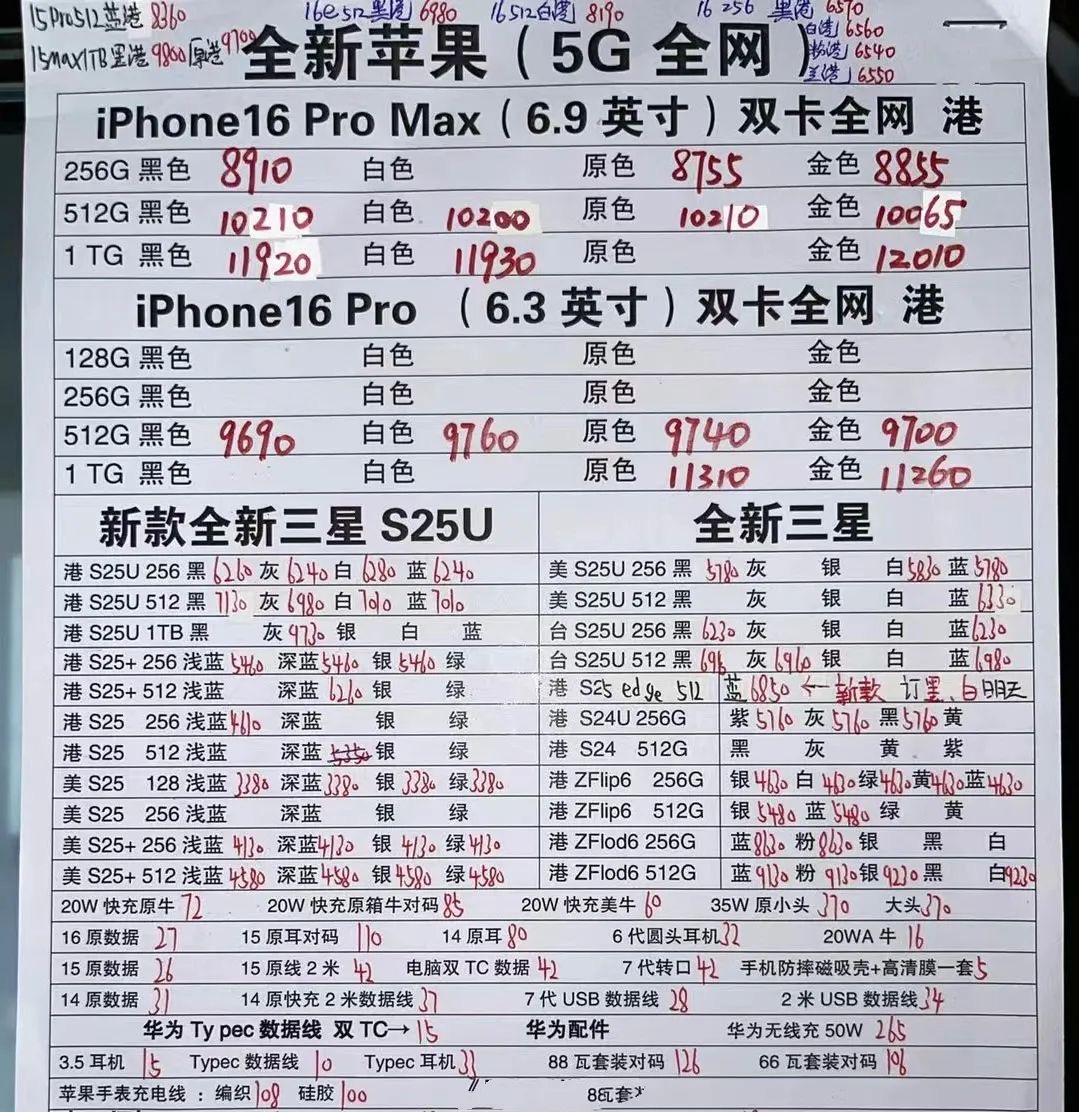 15Pro512蓝港 8360 16e512黑港 6980 16 512白港 8190 16 256 黑港 6570
白港 6560
15max1TB黑港 9800 原港 9700 粉港 6540
兰港 6550
全新苹果（5G 全网）
iPhone16 Pro Max（6.9 英寸）双卡全网 港
256G 黑色 8910 白色 原色 8755 金色 8855
512G 黑色 10210 白色 10200 原色 10210 金色 10065
1 TG 黑色 11920 白色 11930 原色 金色 12010
iPhone16 Pro （6.3 英寸）双卡全网 港
128G 黑色 白色 原色 金色
256G 黑色 白色 原色 金色
512G 黑色 9690 白色 9760 原色 9740 金色 9700
1 TG 黑色 白色 原色 11310 金色 11260
新款全新三星 S25U
港 S25U 256 黑 6260 灰 6240 白 6280 蓝 6240
港 S25U 512 黑 7130 灰 6980 白 7010 蓝 7010
港 S25U 1TB 黑 灰 9730 银 白 蓝
港 S25+ 256 浅蓝 5460 深蓝 5460 银 5460 绿
港 S25+ 512 浅蓝 深蓝 6260 银 绿
港 S25 256 浅蓝 4610 深蓝 银 绿
港 S25 512 浅蓝 深蓝 5350 银 绿
美 S25 128 浅蓝 3380 深蓝 3380 银 3380 绿 3380
美 S25 256 浅蓝 深蓝 银 绿
美 S25+ 256 浅蓝 4130 深蓝 4130 银 4130 绿 4130
美 S25+ 512 浅蓝 4580 深蓝 4580 银 4580 绿 4580
全新三星
美 S25U 256 黑 5780 灰 银 白 5830 蓝 5780
美 S25U 512 黑 灰 银 白 蓝 6330
台 S25U 256 黑 6230 灰 银 白 蓝 6230
台 S25U 512 黑 696 灰 6960 银 白 蓝 6980
港 S25 edge 512 蓝 6850 ← 新款 订黑、白明天
港 S24U 256G 紫 5760 灰 5760 黑 5760 黄
港 S24 512G 黑 灰 黄 紫
港 ZFlip6 256G 银 4630 白 4630 绿 4630 黄 4630 蓝 4630
港 ZFlip6 512G 银 5480 蓝 5480 绿 黄
港 ZFlod6 256G 蓝 8630 粉 8630 银 黑 白
港 ZFlod6 512G 蓝 9130 粉 9130 银 9230 黑 白 9230
20W 快充原牛 72 20W 快充原箱牛对码 85 20W 快充美牛 60 35W 原小头 370 大头 370
16 原数据 27 15 原耳对码 110 14 原耳 80 6 代圆头耳机 32 20WA 牛 16
15 原数据 26 15 原线 2 米 42 电脑双 TC 数据 42 7 代转口 42 手机防摔磁吸壳+高清膜一套 5
14 原数据 31 14 原快充 2 米数据线 37 7 代 USB 数据线 28 2 米 USB 数据线 34
华为 Ty pec 数据线 双 TC→ 15 华为配件 华为无线充 50W 265
3.5 耳机 15 Typec 数据线 10 Typec 耳机 33 88 瓦套装对码 126 66 瓦套装对码 196
苹果手表充电线 : 编织 108 硅胶 100